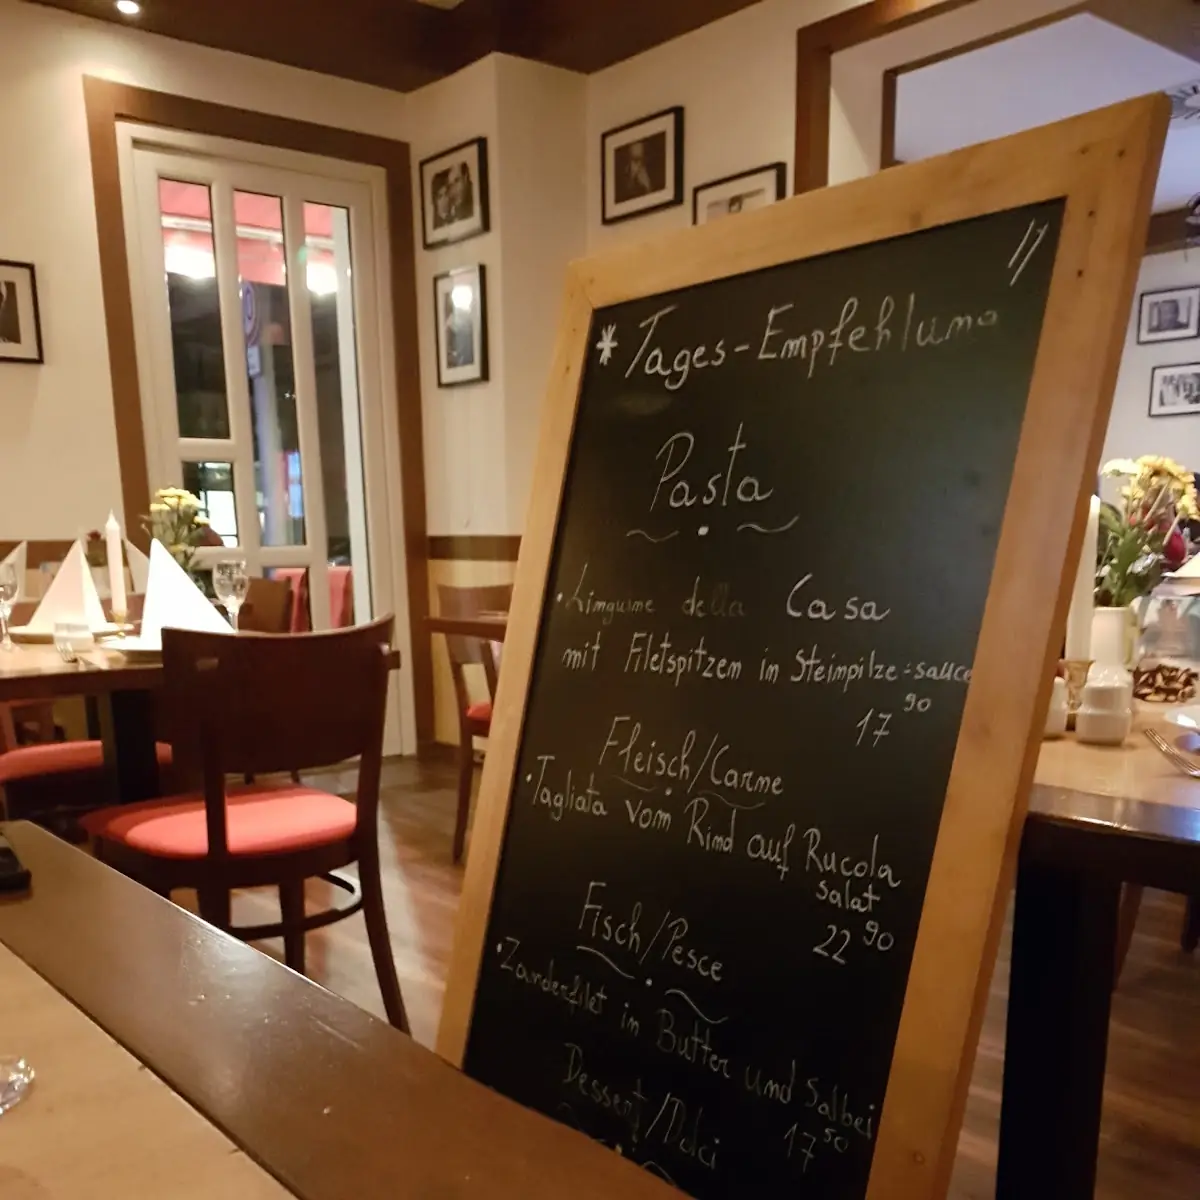 * Tages-Empfehlung
Pasta
• Linguine della Casa
mit Filetspitzen in Steinpilze-sauce
17 90
Fleisch/Carne
• Tagliata vom Rind auf Rucola
salat
22 90
Fisch/Pesce
• Zanderfilet in Butter und Salbei
17 50
Dessert/Dolci